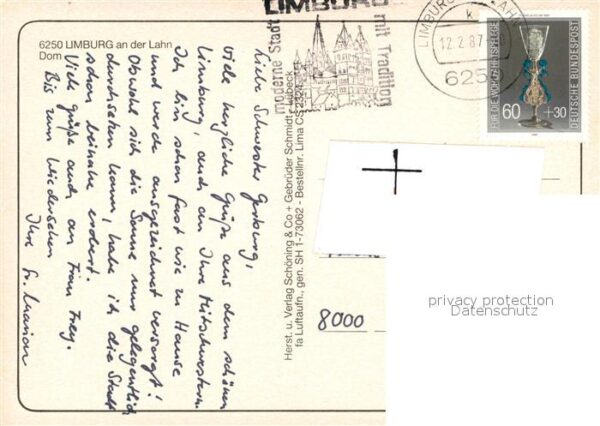 6250 LIMBURG an der Lahn
Dom
LIMBURG
moderne Stadt
mit Tradition
LIMBURG
LAHN
k
12.2.87
6250
FÜR DIE WOHLFAHRTSPFLEGE
60 +30
DEUTSCHE BUNDESPOST
Liebe Schwester Gerburg,
viele herzliche Grüße aus dem schönen
Limburg, auch an Ihre Mitschwestern.
Ich bin schon fast wie zu Hause
und werde ausgezeichnet versorgt!
Obwohl sich die Sonne nur gelegentlich
durchsetzen kann, habe ich die Stadt
schon beinahe erobert.
Viele Grüße auch an Frau Frey.
Bis zum Wiedersehen
Ihre Sr. Marion
Herst. u. Verlag Schöning & Co + Gebrüder Schmidt, Lübeck
fa Luftaufn., gen. SH 1-73062 - Bestellnr. Lima CS 2321
8000
privacy protection
Datenschutz